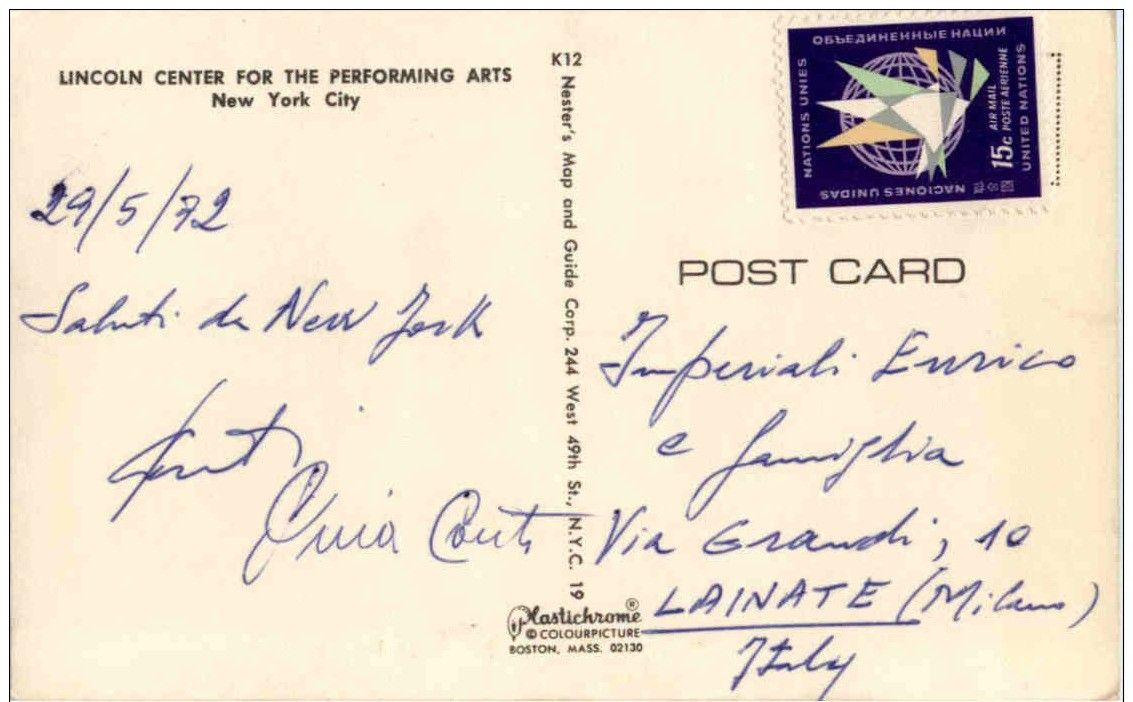 LINCOLN CENTER FOR THE PERFORMING ARTS
New York City
29/5/72
Saluti da New York
Conti
K12
Nester's Map and Guide Corp. 244 West 49th St., N.Y.C. 19
Plastichrome®
© COLOURPICTURE
BOSTON, MASS. 02130
ОБЪЕДИНЕННЫЕ НАЦИИ
NATIONS UNIES
NACIONES UNIDAS
15c AIR MAIL
POSTE AERIENNE
UNITED NATIONS
POST CARD
Imperiali Enrico
e famiglia
Via Grandi, 10
LAINATE (Milano)
Italy